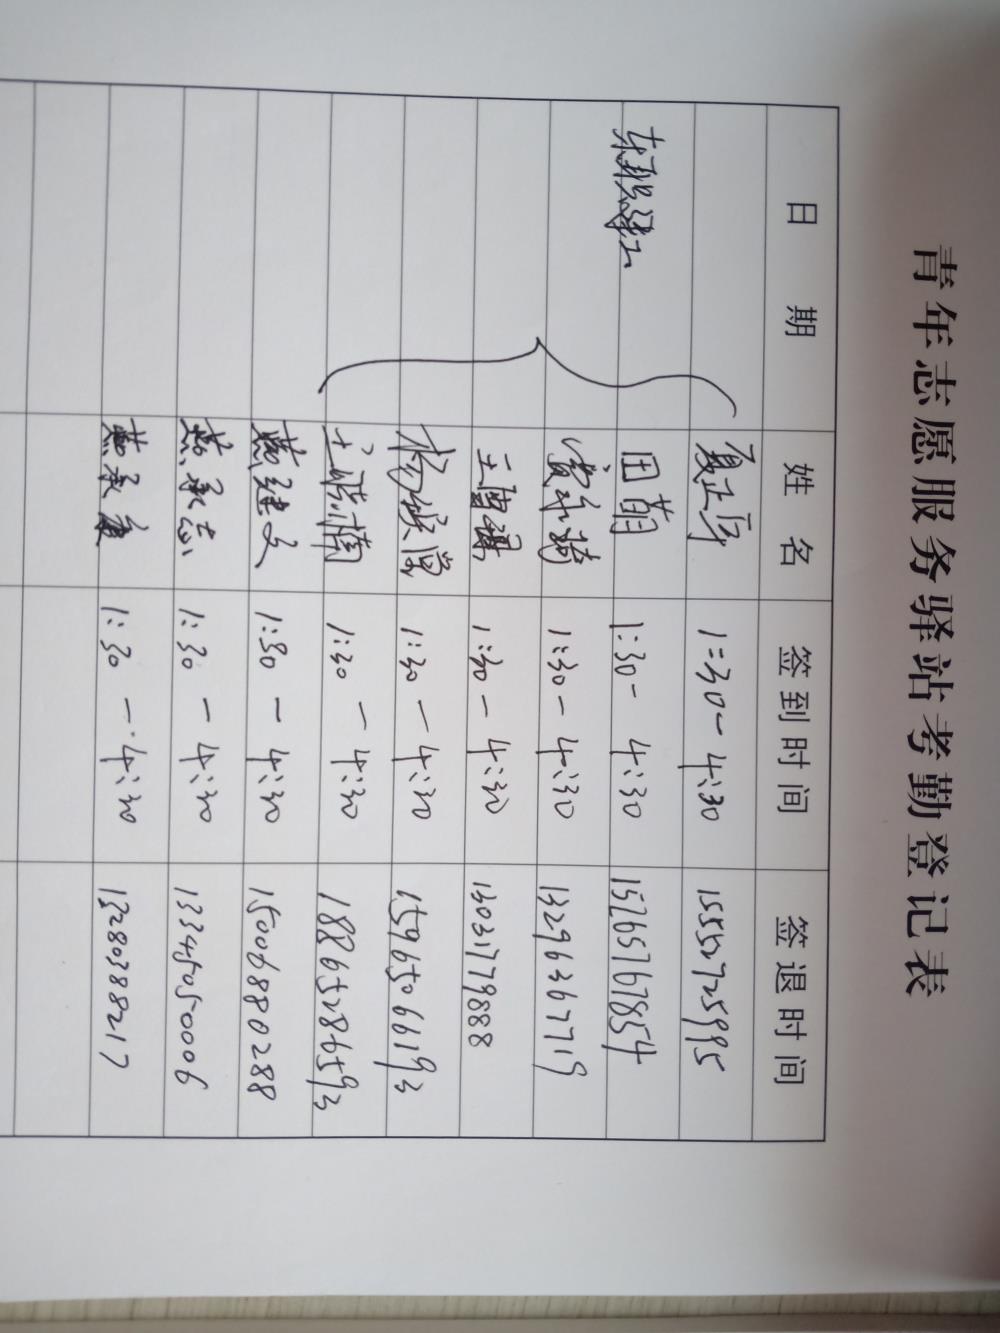 青年志愿服务驿站考勤登记表
日期 姓名 签到时间 签退时间
夏正厚 1:30-4:30 15552725995
东职 田萌 1:30-4:30 15765767854
1:30-4:30 13296367719
王雪琪 1:30-4:30 13031779888
杨 1:30-4:30 15965066193
王 楠 1:30-4:30 18865286593
燕建文 1:30-4:30 15006880288
燕承志 1:30-4:30 13345050006
燕承 1:30-4:30 13280388217